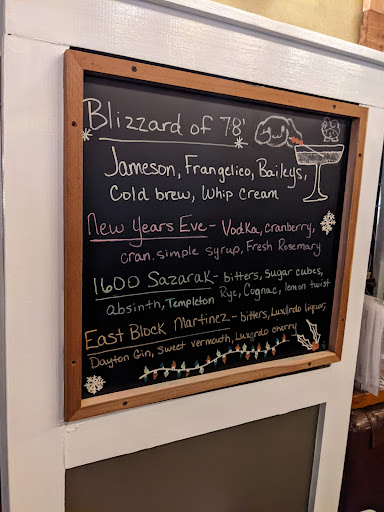 Blizzard of 78'
Jameson, Frangelico, Baileys,
Cold brew, Whip cream
New Years Eve - Vodka, cranberry,
cran. simple syrup, Fresh Rosemary
1600 Sazarak - bitters, sugar cubes,
absinth, Templeton Rye, Cognac, lemon twist
East Block Martinez - bitters, Luxardo liquor,
Dayton Gin, sweet vermouth, Luxardo cherry